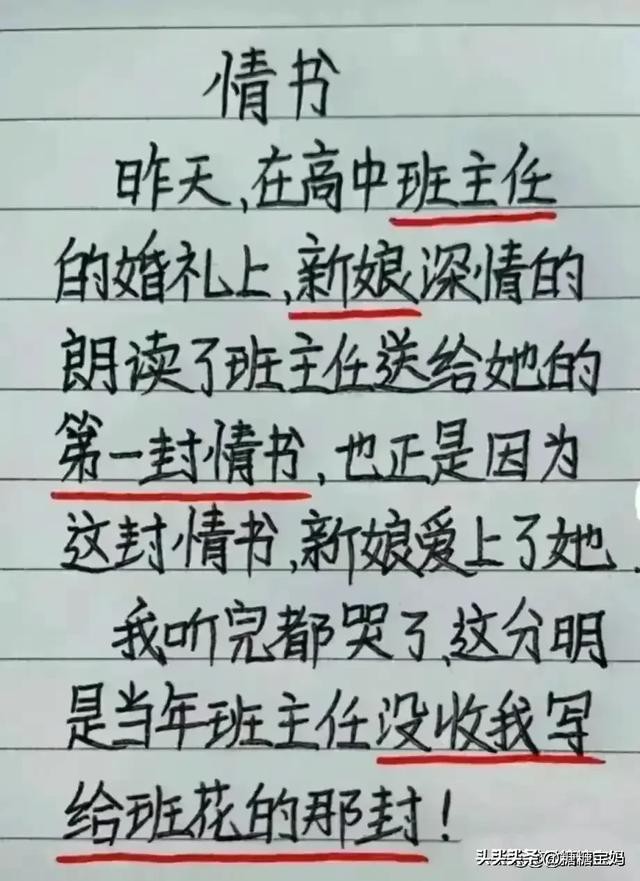 情书
昨天,在高中班主任
的婚礼上,新娘深情的
朗读了班主任送给她的
第一封情书,也正是因为
这封情书,新娘爱上了她.
我听完都哭了,这分明
是当年班主任没收我写
给班花的那封!
头条 @糖糖宝妈